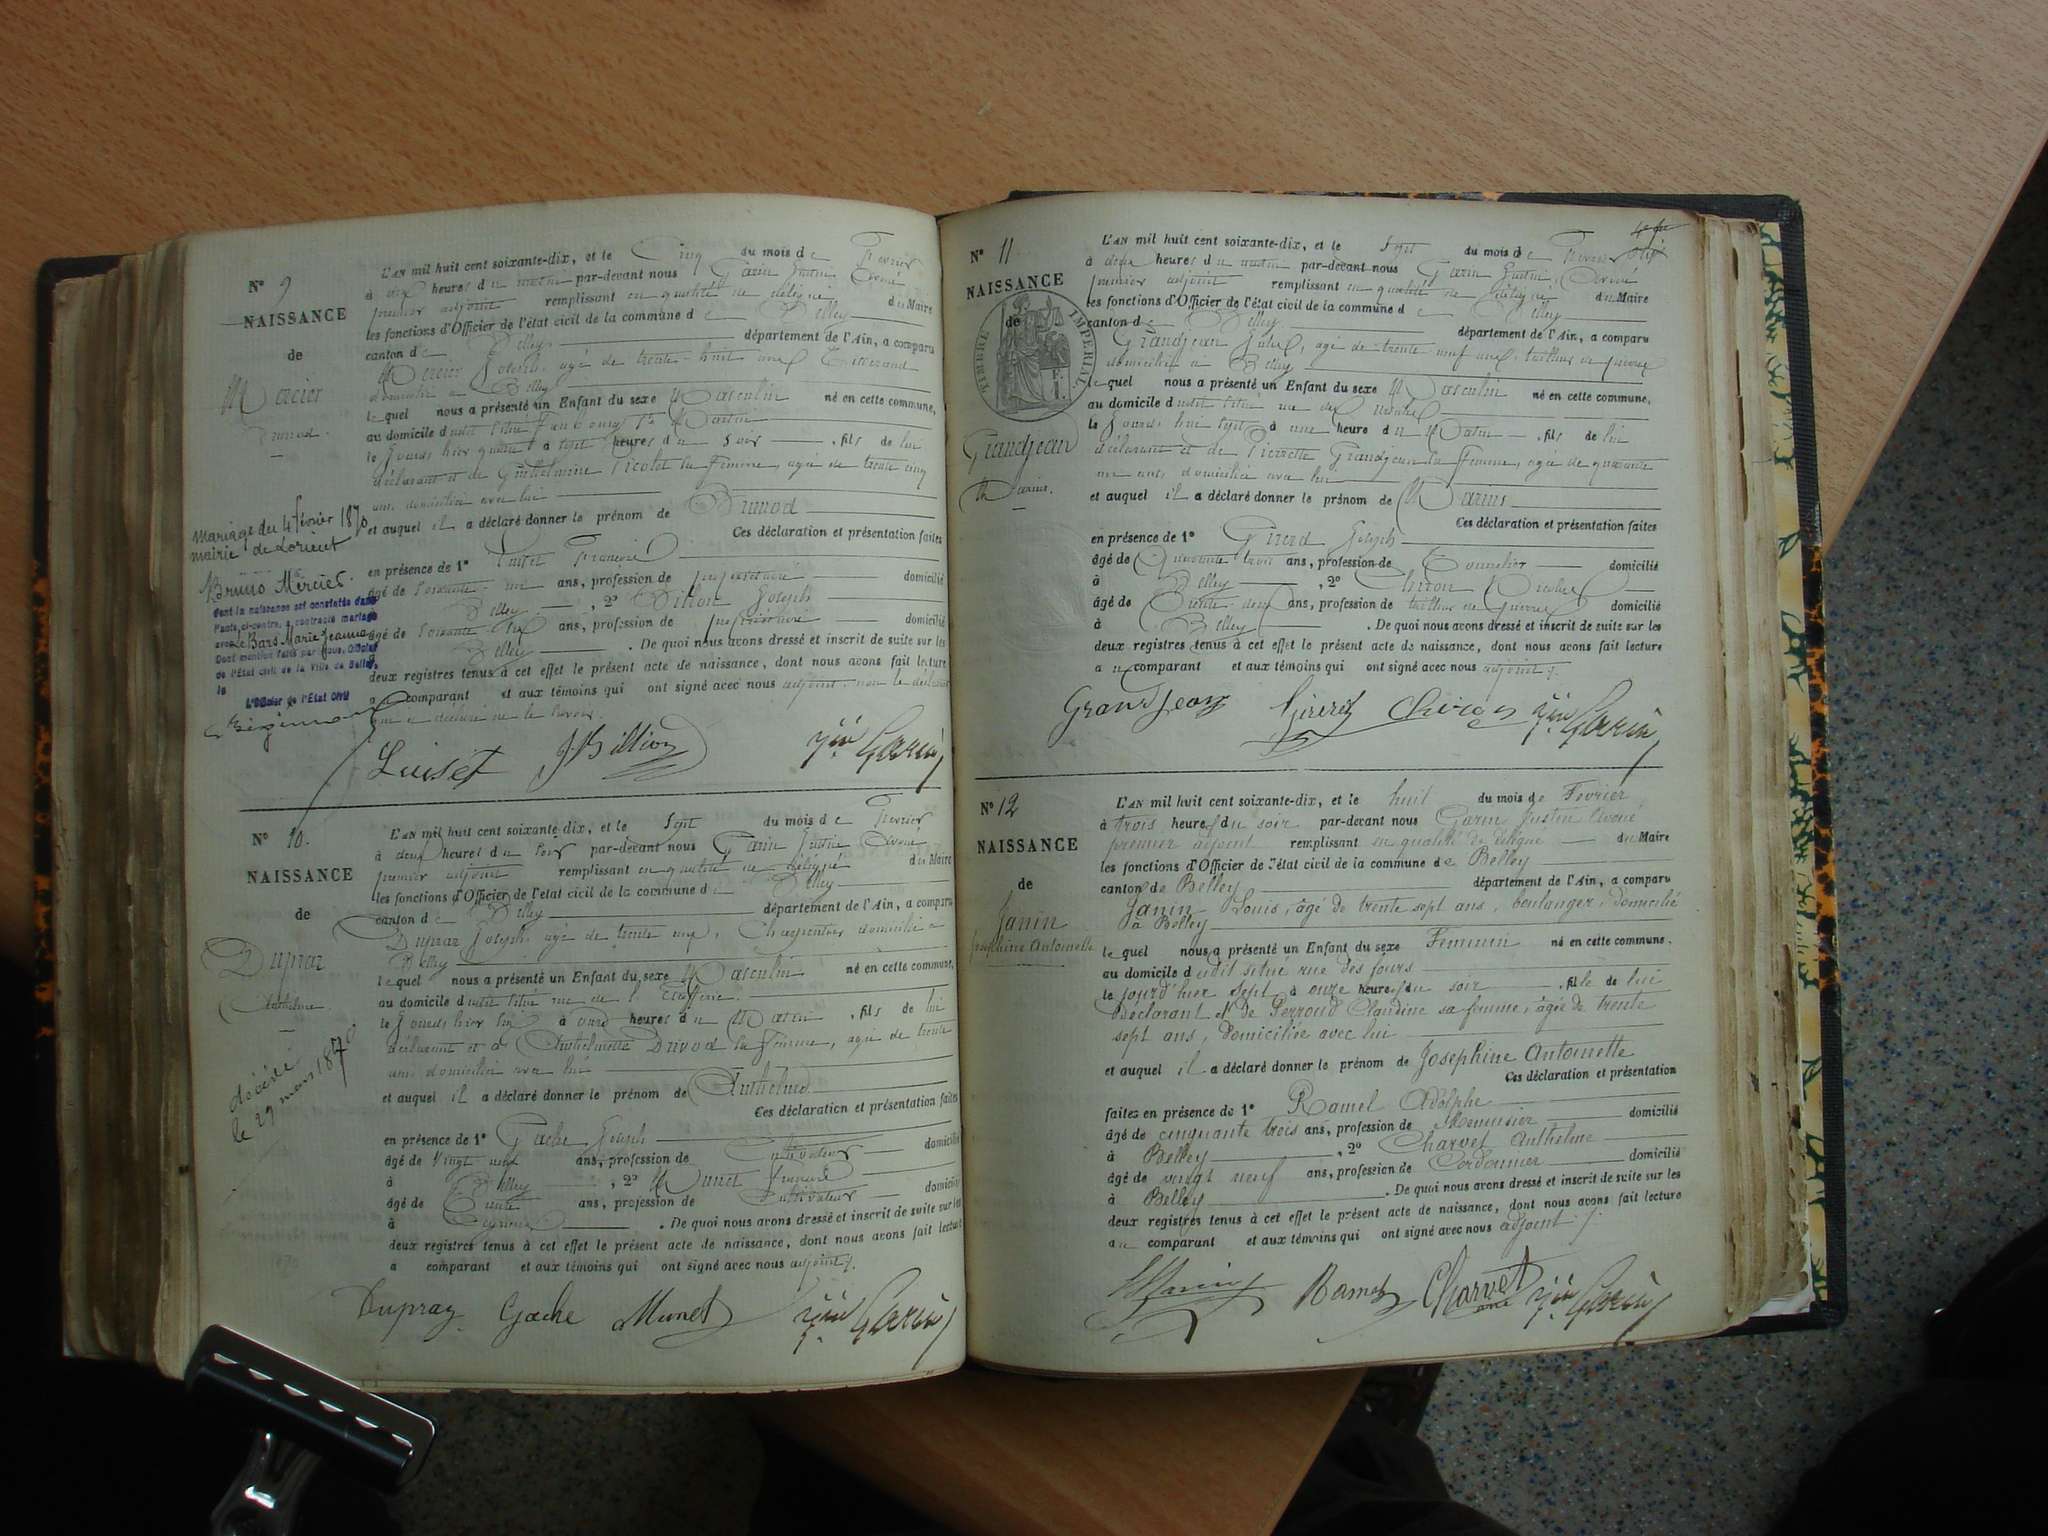 N° 9
NAISSANCE
de
Mercier
Mariage du 4 février 18
mairie de Lorient
Bruno Mercier
dont la naissance est constatée dans
l'acte ci-contre, a contracté mariage
avec Le Bars Marie Jeanne
Dont mention faite par nous, Officier
de l'État civil de la Ville de Belley,
le
L'Officier de l'État Civil
L'AN mil huit cent soixante-dix, et le Cinq du mois de Fevrier
à dix heures du matin par-devant nous Garin Justin Avoué
premier adjoint remplissant en qualité de délégué du Maire
les fonctions d'Officier de l'état civil de la commune de Belley
canton de Belley département de l'Ain, a comparu
Mercier Joseph, agé de trente-huit ans
domicilié à Belley
lequel nous a présenté un Enfant du sexe Masculin né en cette commune,
au domicile dudit situé Faubourg St Martin
le jourd'hier quatre à sept heures du soir, fils de lui
déclarant et de Guillelmine Picolet sa femme, agée de trente cinq
ans, domiciliée avec lui
et auquel il a déclaré donner le prénom de
Ces déclaration et présentation faites
en présence de 1° Luiset François
âgé de soixante ans, profession de propriétaire domicilié
Belley, 2° Billion Joseph
âgé de soixante ans, profession de propriétaire domicilié
Belley. De quoi nous avons dressé et inscrit de suite sur les
deux registres tenus à cet effet le présent acte de naissance, dont nous avons fait lecture
comparant et aux témoins qui ont signé avec nous adjoint, non le déclarant
qui a déclaré ne le savoir.
Luiset J. Billion Jin Garin
N° 10.
NAISSANCE
de
Dupraz
Anthelme
décédé
le 29 mars 1870
L'AN mil huit cent soixante-dix, et le sept du mois de Fevrier
à deux heures du soir par-devant nous Garin Justin Avoué
premier adjoint remplissant en qualité de délégué du Maire
les fonctions d'Officier de l'état civil de la commune de Belley
canton de Belley département de l'Ain, a comparu
Dupraz Joseph, agé de trente ans, Charpentier domicilié à
Belley
lequel nous a présenté un Enfant du sexe Masculin né en cette commune,
au domicile dudit situé rue de l'
le jourd'hier six à onze heures du Matin, fils de lui
déclarant et de Anthelmette sa femme, agée de trente
ans domiciliée avec lui
et auquel il a déclaré donner le prénom de Anthelme
Ces déclaration et présentation faites
en présence de 1° Gache Joseph
âgé de Vingt neuf ans, profession de Cultivateur domicilié
à Belley, 2° Munet François
âgé de Trente ans, profession de Cultivateur domicilié
à. De quoi nous avons dressé et inscrit de suite sur les
deux registres tenus à cet effet le présent acte de naissance, dont nous avons fait lecture
a comparant et aux témoins qui ont signé avec nous adjoint /.
Dupraz Gache Munet Jin Garin
N° 11
NAISSANCE
de
TIMBRE IMPERIAL
Grandjean
Marius.
L'AN mil huit cent soixante-dix, et le sept du mois de Fevrier
à deux heures du matin par-devant nous Garin Justin Avoué
premier adjoint remplissant en qualité de délégué du Maire
les fonctions d'Officier de l'état civil de la commune de Belley
canton de Belley département de l'Ain, a comparu
Grandjean Jules, agé de trente neuf ans, tailleur de pierres
domicilié à Belley
lequel nous a présenté un Enfant du sexe Masculin né en cette commune,
au domicile dudit situé rue des
le jourd'hui sept à une heure du Matin, fils de lui
déclarant et de Pierrette Grandjean sa femme, agée de quarante
un ans, domiciliée avec lui
et auquel il a déclaré donner le prénom de Marius
Ces déclaration et présentation faites
en présence de 1° Girerd Joseph
âgé de Quarante trois ans, profession de Tonnelier domicilié
à Belley, 2° Chiron Nicolas
âgé de Trente deux ans, profession de tailleur de pierres domicilié
à Belley. De quoi nous avons dressé et inscrit de suite sur les
deux registres tenus à cet effet le présent acte de naissance, dont nous avons fait lecture
au comparant et aux témoins qui ont signé avec nous adjoint /.
Grandjean Girerd Chiron Jin Garin
N° 12
NAISSANCE
de
Janin
Joséphine Antoinette
L'AN mil huit cent soixante-dix, et le huit du mois de Fevrier
à trois heures du soir par-devant nous Garin Justin Avoué
premier adjoint remplissant en qualité de délégué du Maire
les fonctions d'Officier de l'état civil de la commune de Belley
canton de Belley département de l'Ain, a comparu
Janin Louis, âgé de trente sept ans, boulanger, domicilié
à Belley
lequel nous a présenté un Enfant du sexe Feminin né en cette commune.
au domicile dudit situé rue des fours
le jourd'hier sept à onze heures du soir, fille de lui
déclarant et de Perroud Claudine sa femme, âgée de trente
sept ans, domiciliée avec lui
et auquel il a déclaré donner le prénom de Josephine Antoinette
Ces déclaration et présentation
faites en présence de 1° Ramel Adolphe
âgé de cinquante trois ans, profession de Menuisier domicilié
à Belley, 2° Charvet Anthelme
âgé de vingt neuf ans, profession de Cordonnier domicilié
à Belley. De quoi nous avons dressé et inscrit de suite sur les
deux registres tenus à cet effet le présent acte de naissance, dont nous avons fait lecture
au comparant et aux témoins qui ont signé avec nous adjoint /.
Janin Ramel Charvet Jin Garin